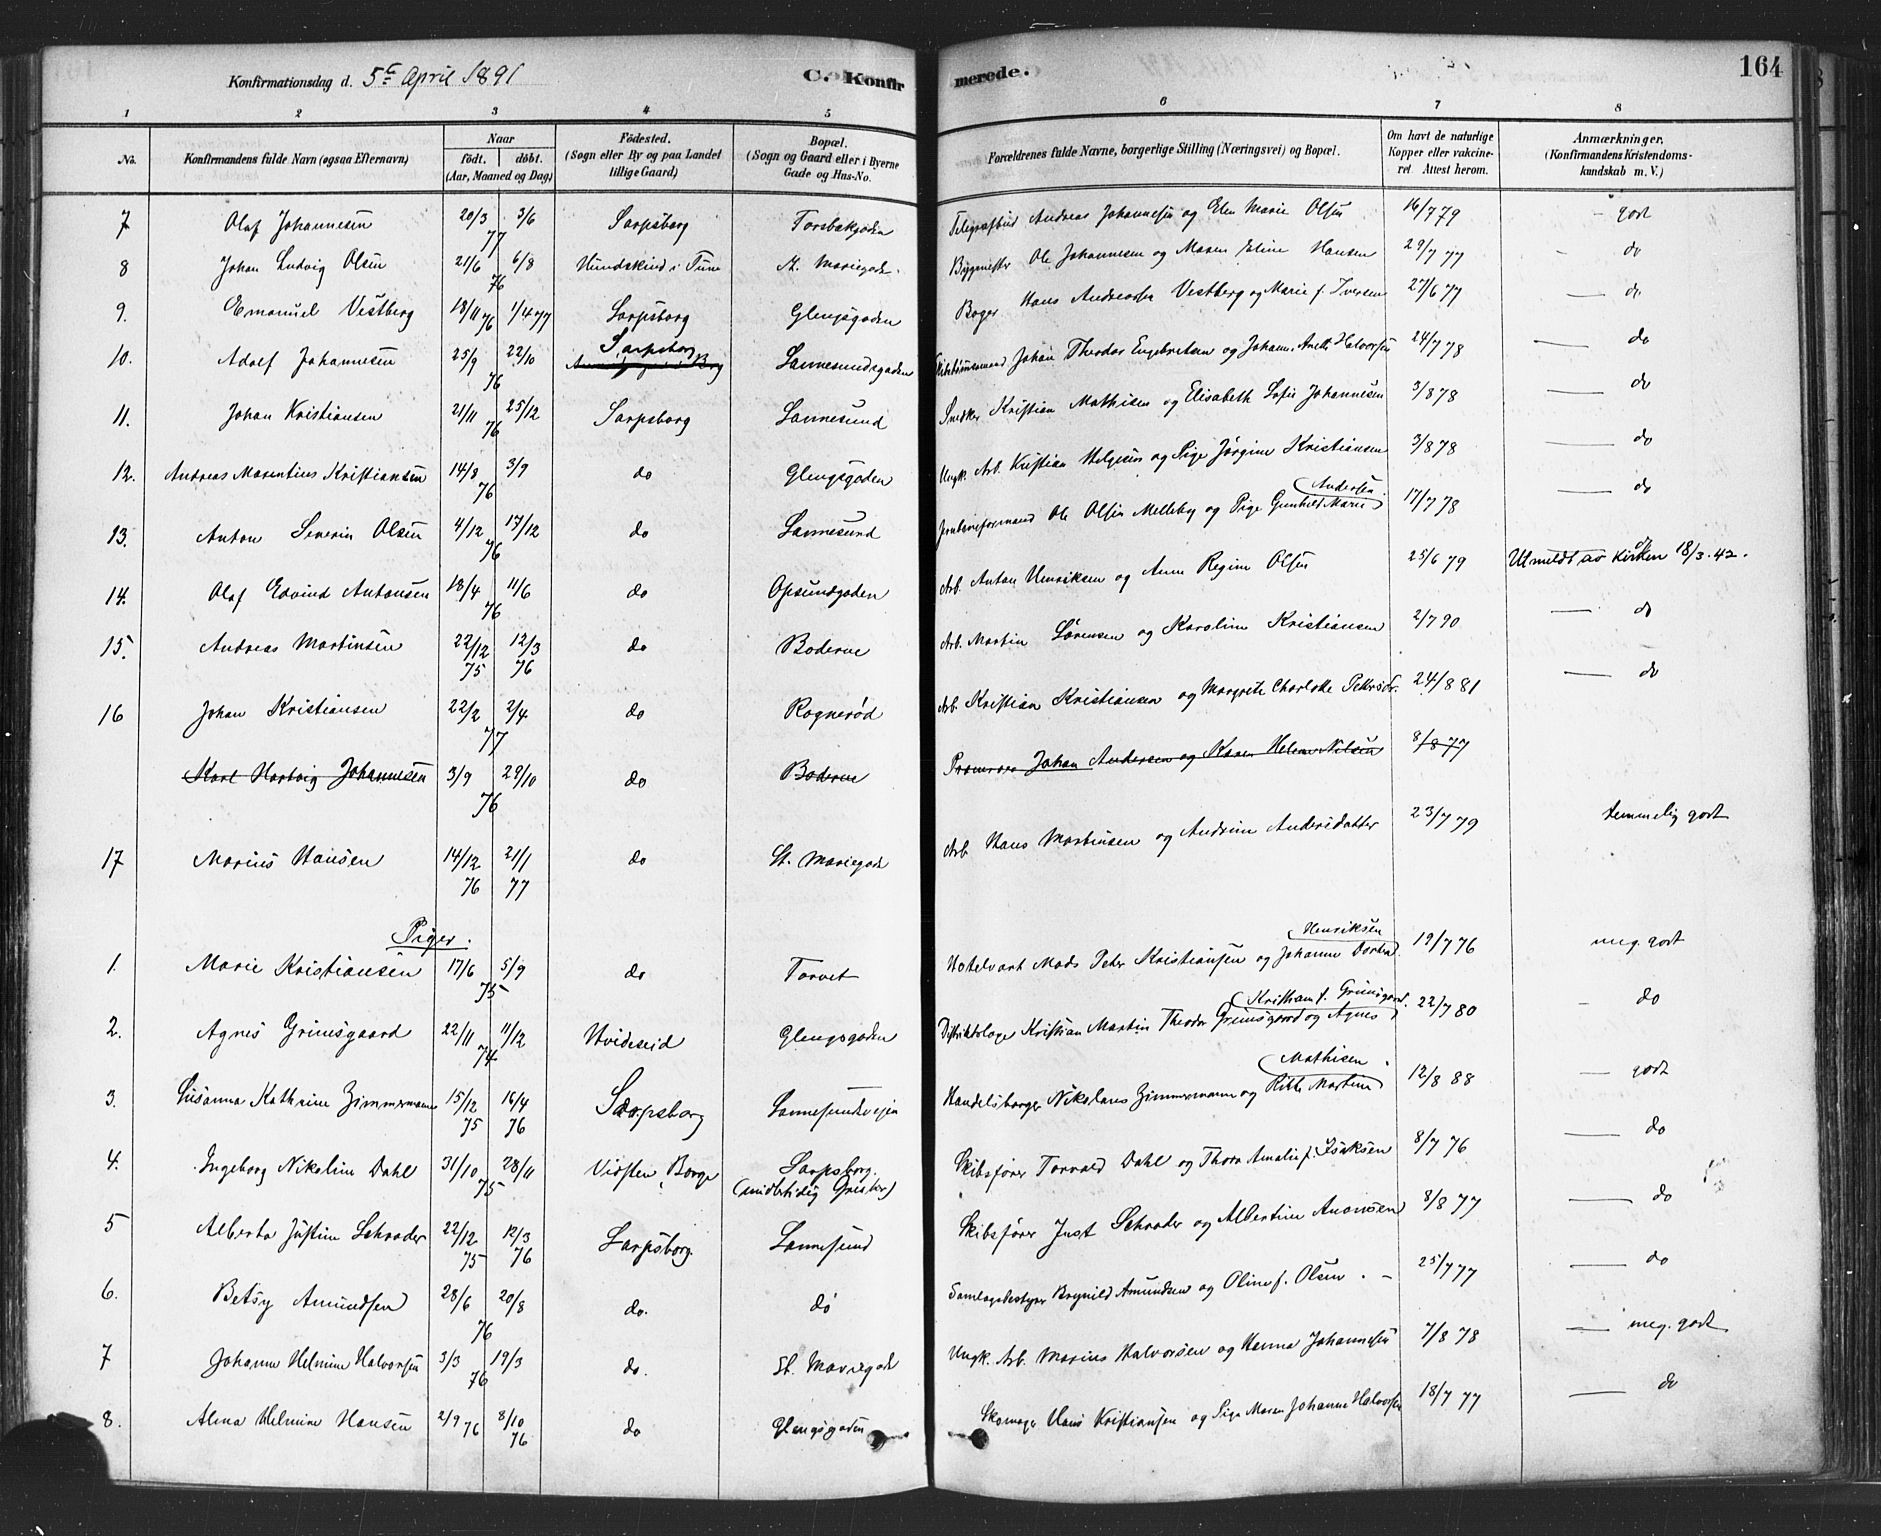 Konfirmationsdag d. 5te April 1891 C. Konfirmerede. 164
1 2 3 4 5 6 7 8
No. Konfirmandens fulde Navn (ogsaa Efternavn) Naar födt. döbt. (Aar, Maaned og Dag) Födested. (Sogn eller By og paa Landet tillige Gaard) Bopæl. (Sogn og Gaard eller i Byerne Gade og Hus-No. Forældrenes fulde Navne, borgerlige Stilling (Næringsvei) og Bopæl. Om havt de naturlige Kopper eller vakcineret. Attest herom. Anmærkninger. (Konfirmandens Kristendomskundskab m. V.)
7 Olaf Johannesen 20/3 77 3/6 Sarpsborg Torsbakgaden Andreas Johannesen og Elen Marie Olsen 16/7 79 godt
8 Johan Ludvig Olsen 21/6 76 6/8 Hundskind i Tune St. Mariegade. Bygmester Ole Johannesen og Maren Eline Hansen 29/7 77 do
9. Emanuel Vestberg 18/11 76 1/4 77 Sarpsborg Glengsgaden Bager Hans Andreassen Vestberg og Marie f. Iversen 27/6 77 do
10. Adolf Johannesen 25/9 76 22/10 Sarpsborg Sannesundsgaden Arbeidsmand Johan Theodor Engebretsen og Johanne Anette Halvorsen 24/7 78 do
11. Johan Kristiansen 21/11 76 25/12 Sarpsborg Sannesund Snedker Kristian Mathisen og Elisabeth Sofie Johannesen 3/8 78 do
12. Andreas Marentius Kristiansen 14/8 76 3/9 do Glengsgaden Ungk. Arb. Kristian Helgesen og Pige Jørgine Kristiansen 3/8 78 do
13. Anton Severin Olsen 4/12 76 17/12 do Sannesund Jernbaneformand Ole Olsen Melleby og Pige Gunhild Marie Andersen. 17/7 78 do
14. Olaf Edvind Antonsen 18/4 76 11/6 do Opsundgaden Arb. Anton Henriksen og Anne Regine Olsen 25/6 79 Utmeldt av kirken 18/3.42.
15. Andreas Martinsen 22/12 75 12/3 76 do Boderne Arb. Martin Sørensen og Karoline Kristiansen 2/7 90 do
16 Johan Kristiansen 22/2 77 2/4 do Rognerød Arb. Kristian Kristiansen og Margrete Charlotte Pettersdr. 24/8 81 do
Karl Hartvig Johannesen 3/9 76 29/10 do Boderne Johan Andersen og Karen Helene Nilsen 8/8 77
17 Marius Hansen 14/12 76 21/1 77 do St. Mariegade Arb. Hans Martinsen og Andrine Andersdatter 23/7 79 temmelig godt
Piger.
1. Marie Kristiansen 17/6 75 5/9 do Torvet Hotelvært Mads Peter Kristiansen og Johanne Dorthea Henriksen 19/7 76 meg. godt
2. Agnes Grimsgaard 22/11 74 11/12 Hvideseid Glengsgaden Distriktslæge Kristian Martin Theodor Grimsgaard og Agnes f. Grimsgaard. 22/7 80 do
3. Susanna Kathrine Zimmermann 15/12 75 16/4 76 Sarpsborg Sannesundsvejen Handelsborger Nikolaus Zimmermann og Martine Mathisen 12/8 88 godt
4. Ingeborg Nikoline Dahl 31/10 75 28/11 Vidsten, Borge Sarpsborg. (midlertidig Greåker) Skibsfører Torvald Dahl og Thora Amalie f. Isaksen 8/7 76 do
5 Alberta Justine Schrader 22/12 75 12/3 76 Sarpsborg. Sannesund Skibsfører Just Schrader og Albertine Anonsen 8/8 77 do
6. Betsy Amundsen 28/6 76 20/8 do. do Samlagsbestyrer Brynild Amundsen og Oline f. Olsen. 25/7 77 do
7 Johanne Helmine Halvorsen 3/3 76 19/3 do. St. Mariegade Ungk. Arb. Marius Halvorsen og Hanna Johannesen 7/8 78 meg. godt
8. Alma Helmine Hansen 2/9 76 8/10 76 do Glengsgaden Skomager Hans Kristiansen og Pige Maren Johanne Halvorsen 18/7 77 do